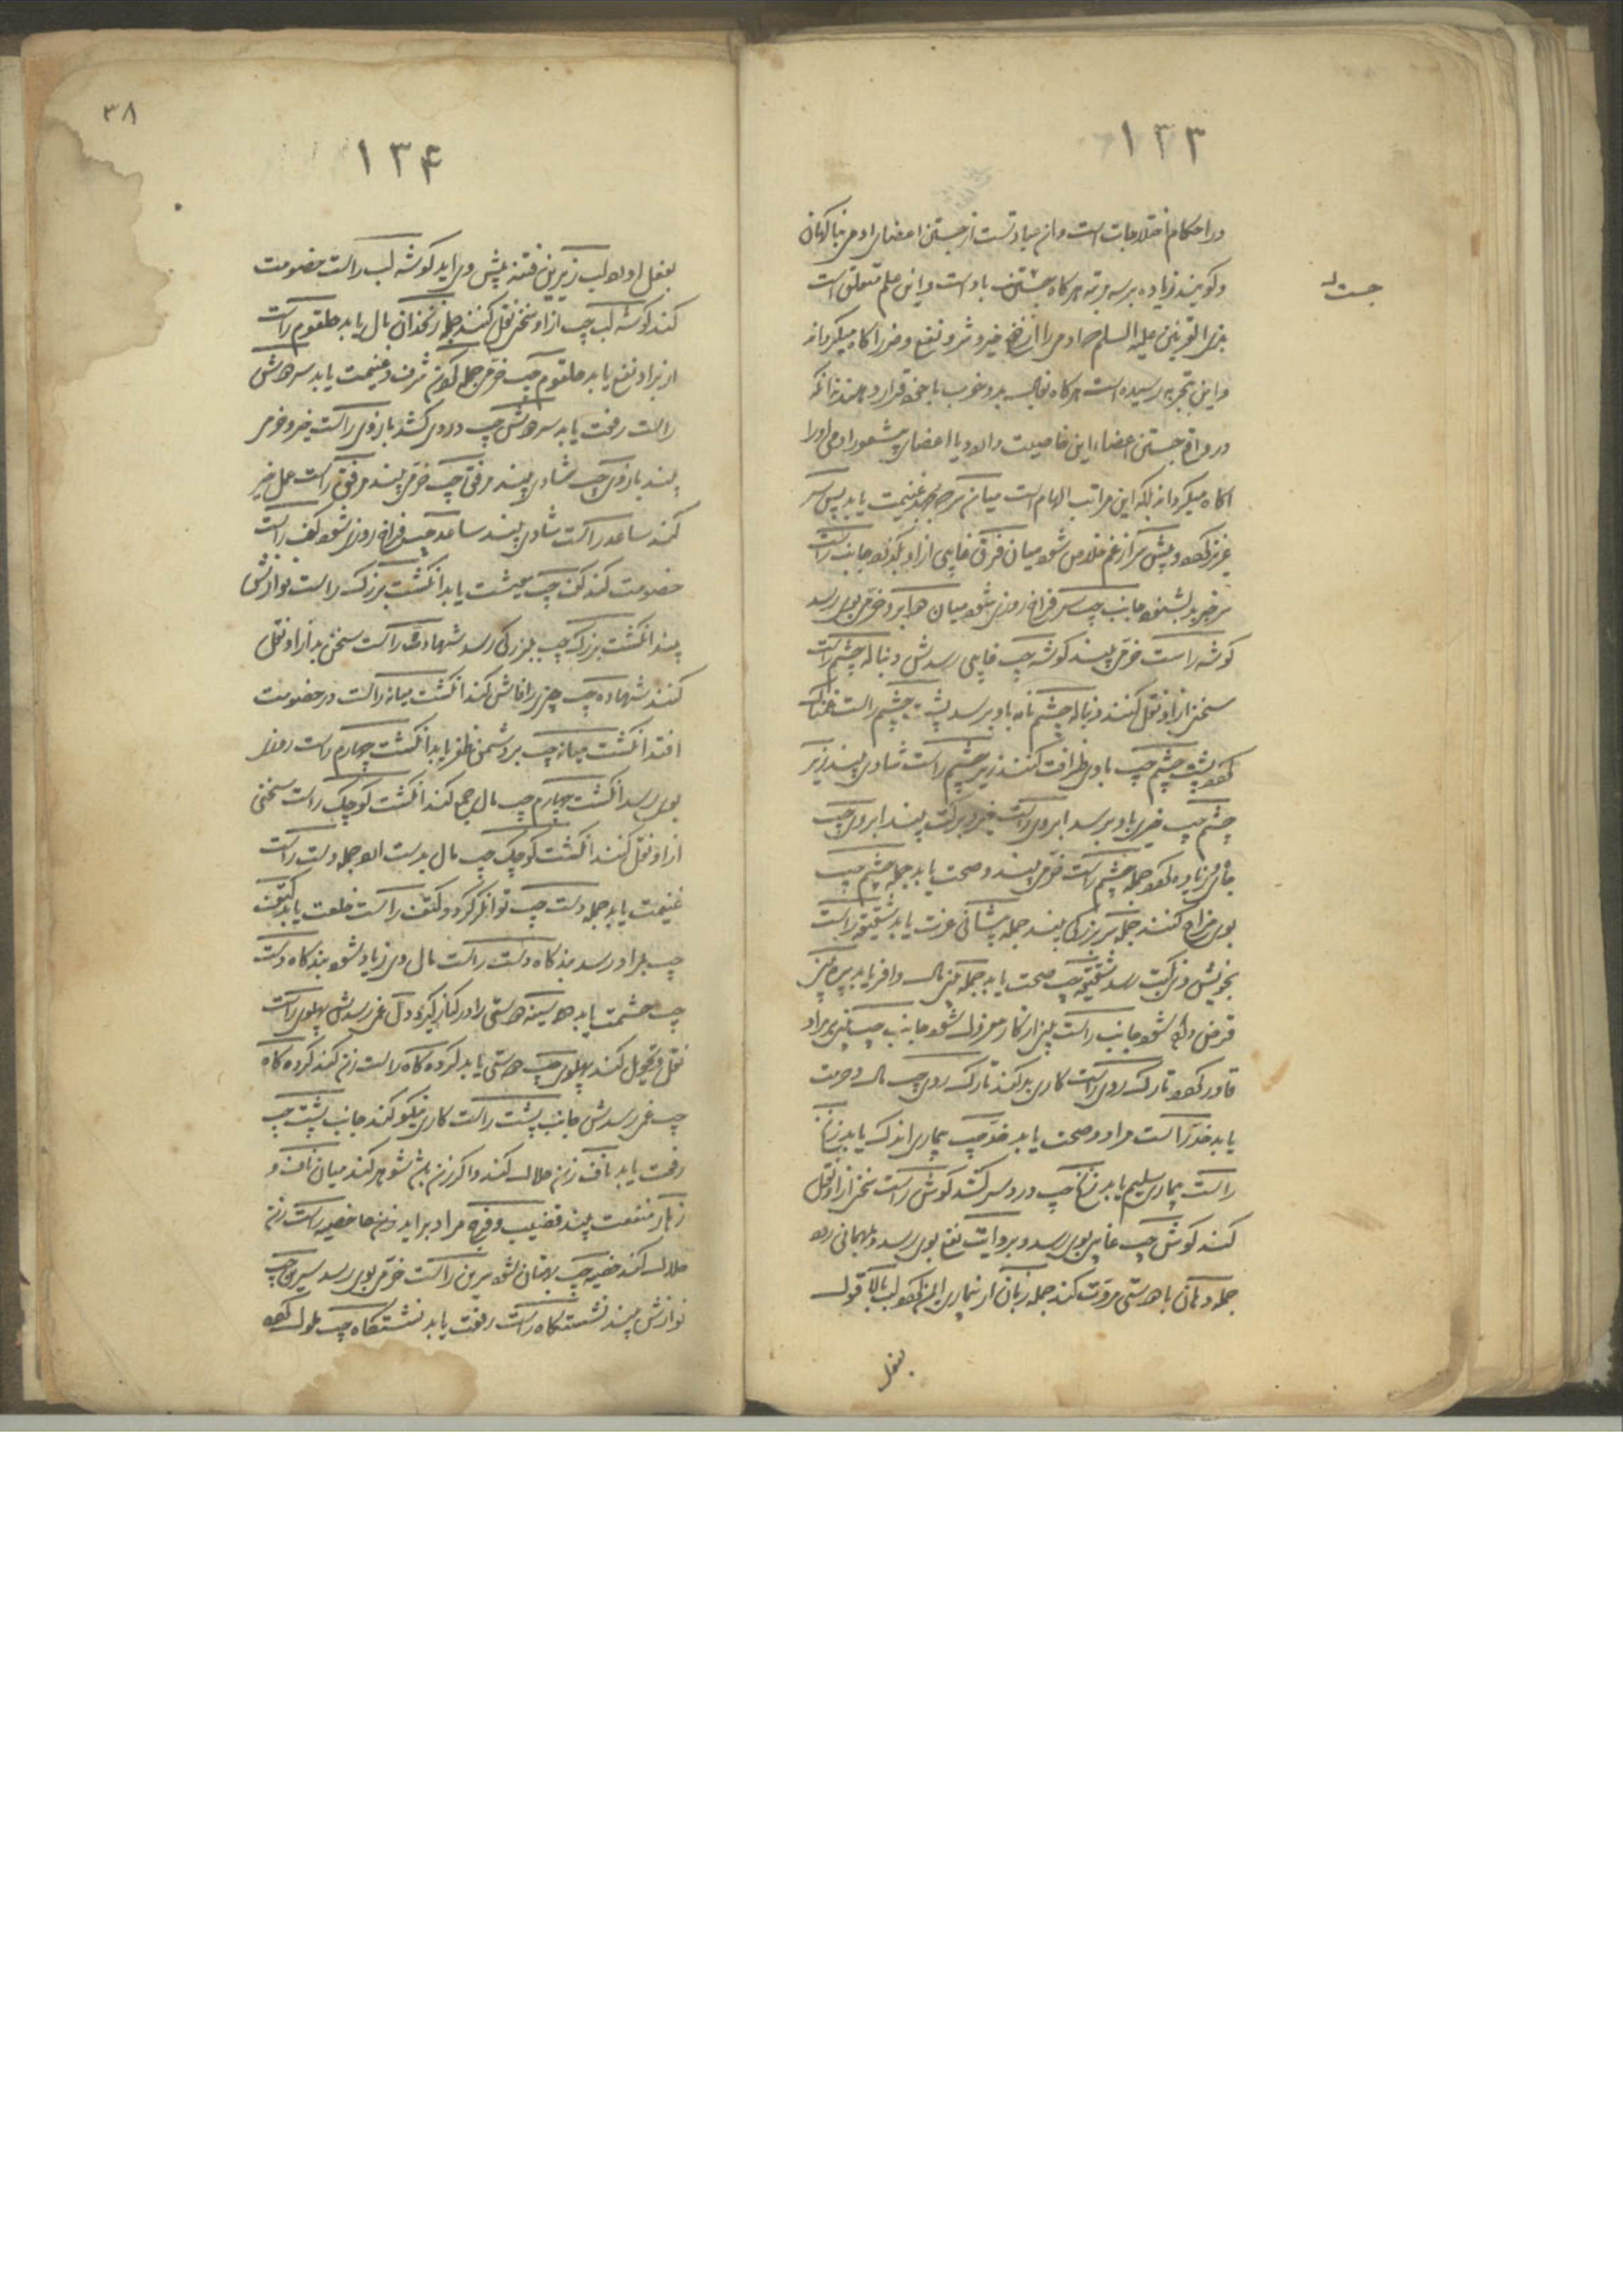 ۱۳۳
در احکام اختلاجات است و ان عبارتست از جستن اعضای ادمی بناکهان
و کویند زیاده بر سه مرتبه هر کاه جستن باد است و این علم متعلق است
جست
بذی القرنین علیه السلم که ادمی را از خیر و شر و نفع و ضرر اکاه میکرداند
و این بتجربه رسیده است هر کاه فال بد و خوب با خود قرار دهند
در واقع جستن اعضا این خاصیت دارد یا اعضای ادمی او را
اکاه میکرداند بلکه این مراتب الهام است میان سر غنیمت یابد پس سر
عزیز کردد پیش سر از غم خلاص شود میان فرق از او جانب راست
سر خبر بد بشنود جانب چپ سر فراخ روزی شود میان دو ابرو خرمی بوی رسد
کوشه راست خرمی بیند کوشه چپ رسدش دنباله چشم راست
سخنی از او نقل کنند دنباله چشم باو برسد چشم راست غمناک
کردد چشم چپ باوی ظرافت کنند زیر چشم راست شادی بیند زیر
چشم چپ خبری باو برسد ابروی راست خیر و برکت بیند ابروی چپ
زیاده کردد جمله چشم راست خرمی بیند و صحت یابد جمله چشم چپ
بوی مزاح کنند جمله سر بزرکی بیند جمله پیشانی عزت یابد شقیقه راست
بخویش رسد شقیقه چپ صحت یابد جمله بینی مال وافر یابد پره بینی
قرض شود جانب راست بینی از کار معزول شود جانب چپ بینی بر مراد
قادر کردد تارک روی راست کاری بد کند تارک روی چپ مال و حرمت
یابد خد راست مراد و صحت یابد خد چپ بیماری اندک یابد
راست بیماری سلیم یابد چپ درد سر کشد کوش راست سخنی از او نقل
کنند کوش چپ غایبی بوی رسد و بروایت نفع بوی رسد و بمهمانی رود
جمله دهان با دوستی مروت کند جمله زبان از بیماری ایمن کردد لب بالا قول
بفعل
۳۸
۱۳۴
بفعل اورد لب زیرین فتنه پیش وی اید کوشه لب راست خصومت
کند کوشه لب چپ از او سخنی نقل کنند جمله زنخدان مال یابد حلقوم راست
نفع یابد حلقوم چپ خرمی جمله کردن شرف و غنیمت یابد سر دوش
راست رفعت یابد سر دوش چپ دردی کشد بازوی راست خیر و خرمی
بیند بازوی چپ شادی بیند مرفق چپ خرمی بیند مرفق راست عمل خیر
کند ساعد راست شادی بیند ساعد چپ فراخ روزی شود کف راست
خصومت کند کف چپ معیشت یابد انکشت بزرک راست نوازش
بیند انکشت بزرک چپ ببزرکی رسد شهادت راست سخن بد از او نقل
کنند شهاده چپ چیزی را فاش کند انکشت میانه راست در خصومت
افتد انکشت میانه چپ بر دشمن ظفر یابد انکشت چهارم راست روزی
بوی رسد انکشت چهارم چپ مال جمع کند انکشت کوچک راست سخنی
از او نقل کنند انکشت کوچک چپ مال بدست اورد جمله دست راست
غنیمت یابد جمله دست چپ توانکر کردد کتف راست خلعت یابد کتف
چپ بمراد رسد بندکاه دست راست مال وی زیاد شود بندکاه دست
چپ حشمت یابد سینه دوستی را در کنار کیرد دل غمی رسدش پهلوی راست
نقل و تحویل کند پهلوی چپ دوستی یابد کرده کاه راست زن کند کرده کاه
چپ غمی رسدش جانب پشت راست کاری نیکو کند جانب پشت چپ
رفعت یابد ناف زن حلال کند و اکر زن باشد شوهر کند میان ناف و
زهار منفعت بیند قضیب و فرج مراد براید خصیه راست زن
حلال کند خصیه چپ بهتان شود سرین راست خرمی بوی رسد سرین چپ
نوازش بیند نشستکاه راست رفعت یابد نشستکاه چپ ملول کردد